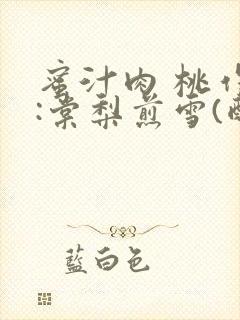 蜜汁肉桃作
:棠梨煎雪(
藍白色